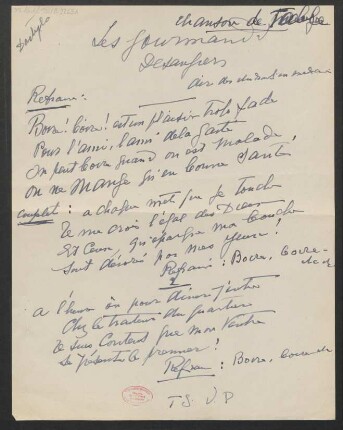 chanson de table
Dactylo
Les gourmands
Desaugiers
air des
Refrain:
Boire! boire! est un plaisir trop fade
Pour l'ami, l'ami de la gaité
On peut boire quand on est malade,
On ne Mange qu'en bonne santé
Couplet: a chaque mets que je touche
Je me crois l'égal des Dieux
Et Ceux, qu'épargne ma bouche
Sont dévorés par mes yeux!
Refrain: Boire, boire
etc
2
a l'heure où pour diner j'entre
Chez le traiteur du quartier
Je suis Content que mon Ventre
Se présente le premier!
Refrain: Boire, boire etc
TS. V.P